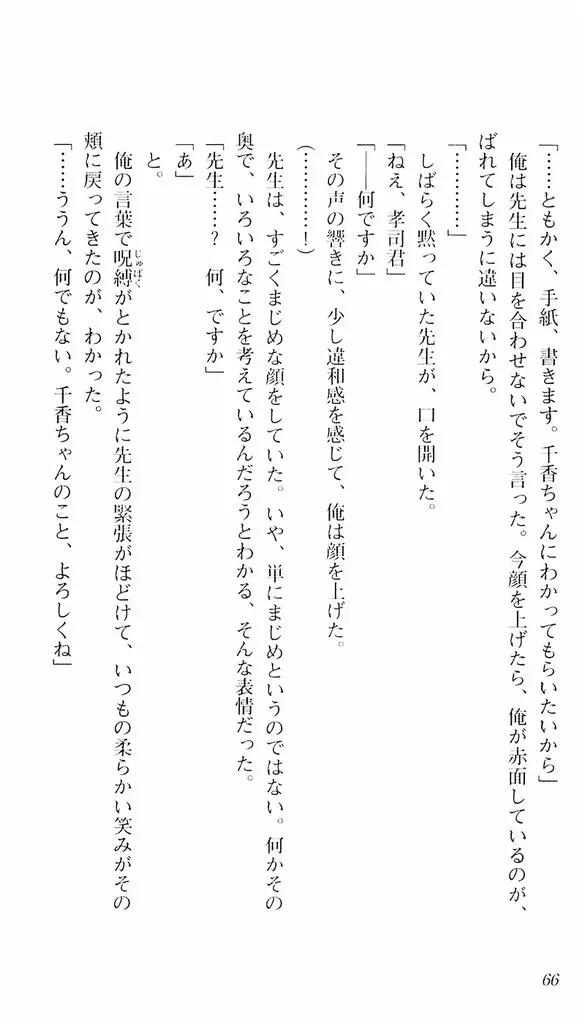 「……ともかく、手紙、書きます。千香ちゃんにわかってもらいたいから」
俺は先生には目を合わせないでそう言った。今顔を上げたら、俺が赤面しているのが、
ばれてしまうに違いないから。
「…………」
しばらく黙っていた先生が、口を開いた。
「ねえ、孝司君」
「――何ですか」
その声の響きに、少し違和感を感じて、俺は顔を上げた。
(…………！)
先生は、すごくまじめな顔をしていた。いや、単にまじめというのではない。何かその
奥で、いろいろなことを考えているんだろうとわかる、そんな表情だった。
「先生……？　何、ですか」
「あ」
と。
俺の言葉で呪縛がとかれたように先生の緊張がほどけて、いつもの柔らかい笑みがその
じゅばく
頬に戻ってきたのが、わかった。
「……ううん、何でもない。千香ちゃんのこと、よろしくね」
66